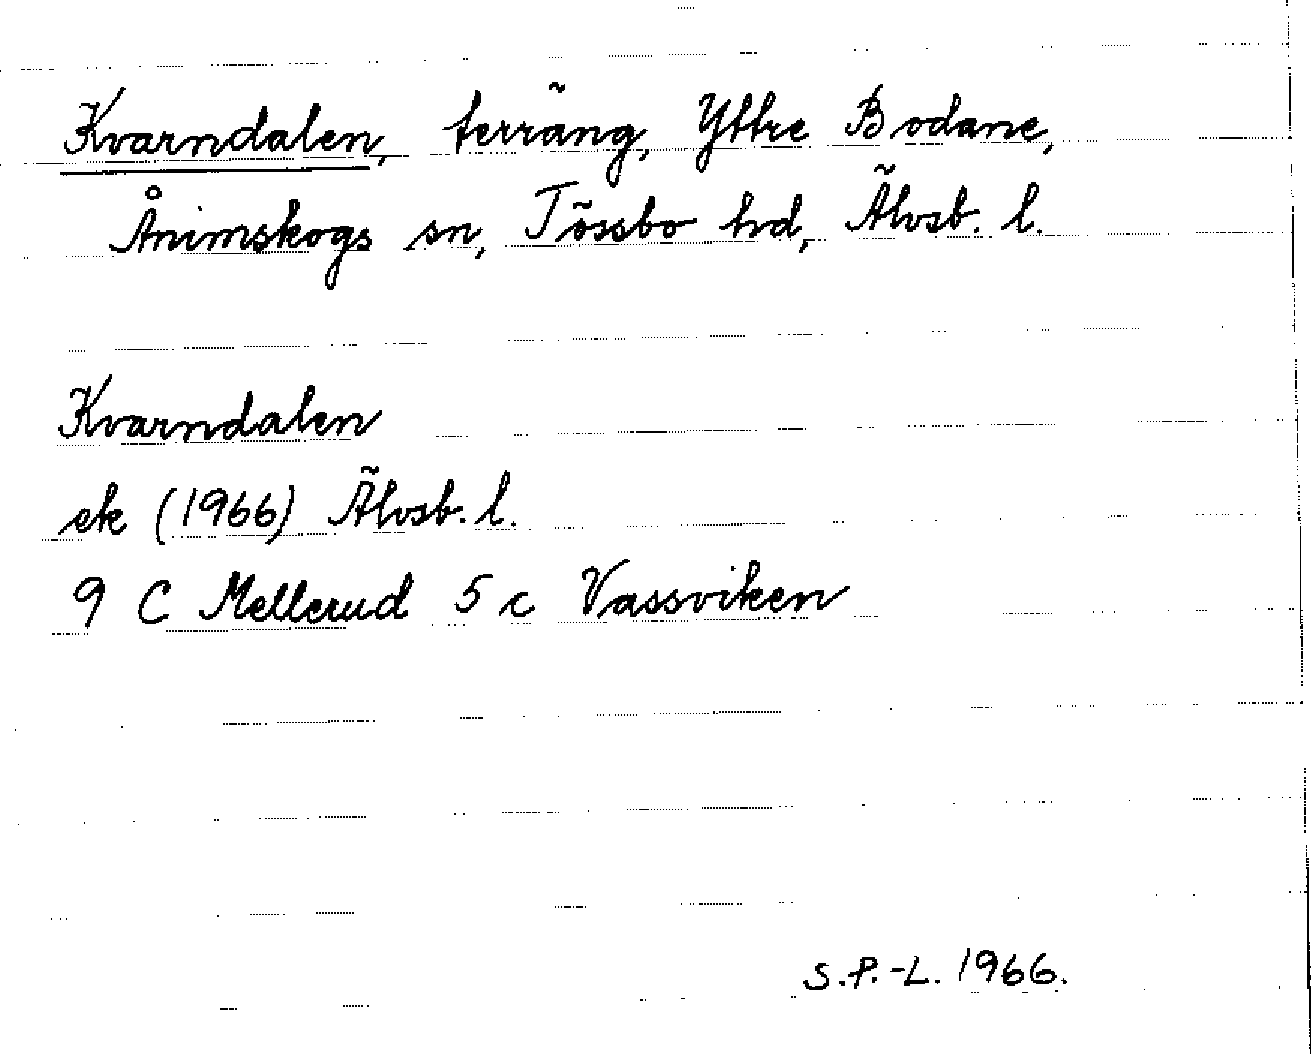 Kvarndalen, terräng, Yttre Bodane,
Ånimskogs sn, Tössbo hd, Älvsb. l.
Kvarndalen
ek (1966) Älvsb. l.
9 C Mellerud 5 c Vassviken
S.P.-L. 1966.